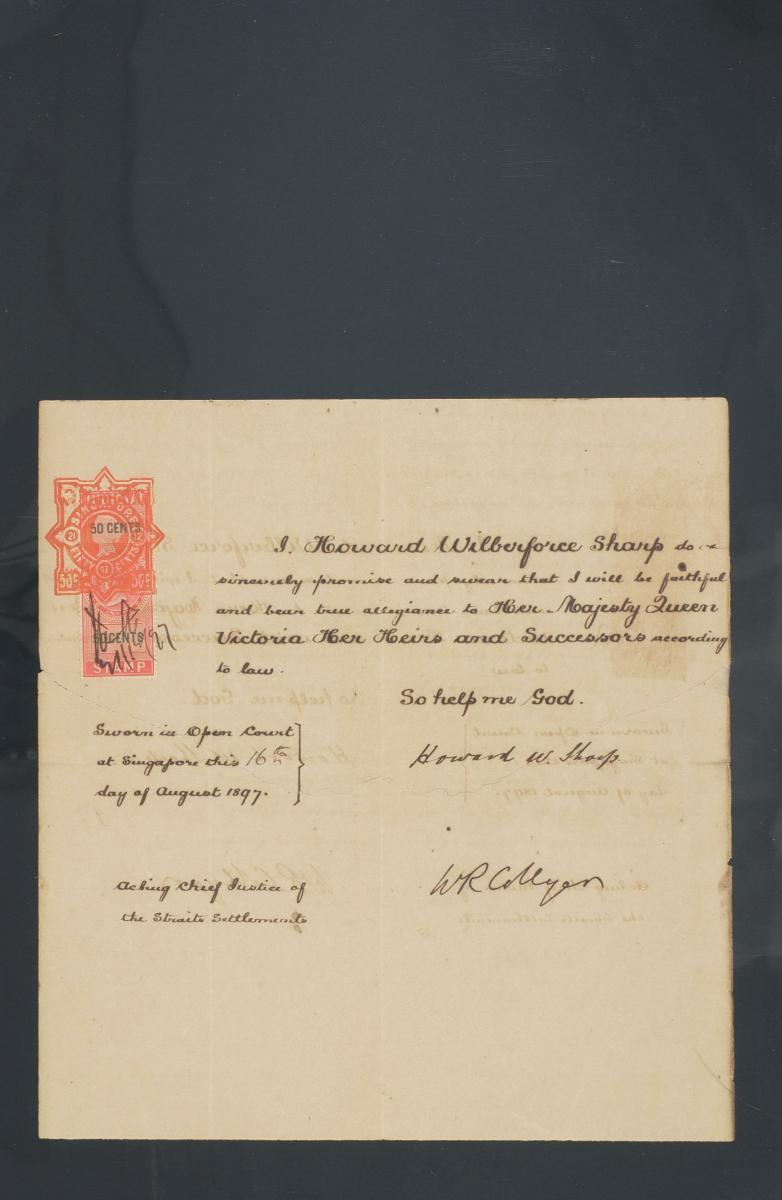 JUDICIAL
SINGAPORE
50 CENTS
21 12
FIFTY CENTS
97
50c 50c
50 CENTS
97
STAMP
I, Howard Wilberforce Sharp do
sincerely promise and swear that I will be faithful
and bear true allegiance to Her Majesty Queen
Victoria Her Heirs and Successors according
to law.
So help me God.
Sworn in Open Court
at Singapore this 16th
day of August 1897.
Howard W. Sharp
WR Collyer
Acting Chief Justice of
the Straits Settlements